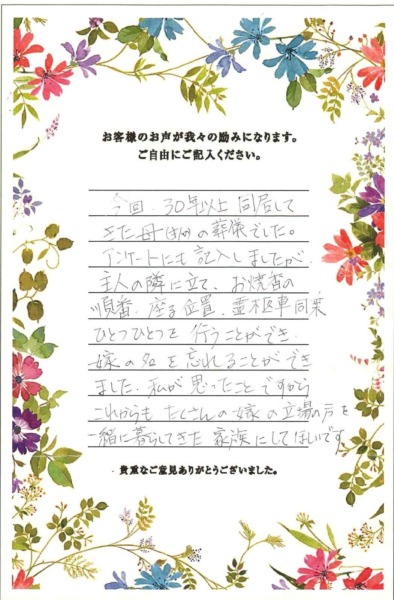 お客様のお声が我々の励みになります。
ご自由にご記入ください。
今回、30年以上同居して
きた母 の葬儀でした。
アンケートにも記入しましたが、
主人の隣に立て、お焼香の
順番、座る位置、霊柩車同乗
ひとつひとつを行うことができ、
嫁の名を忘れることができ
ました。私が思ったことですから
これからもたくさんの嫁の立場の を
一緒に暮らしてきた家族にしてほしいです
貴重なご意見ありがとうございました。